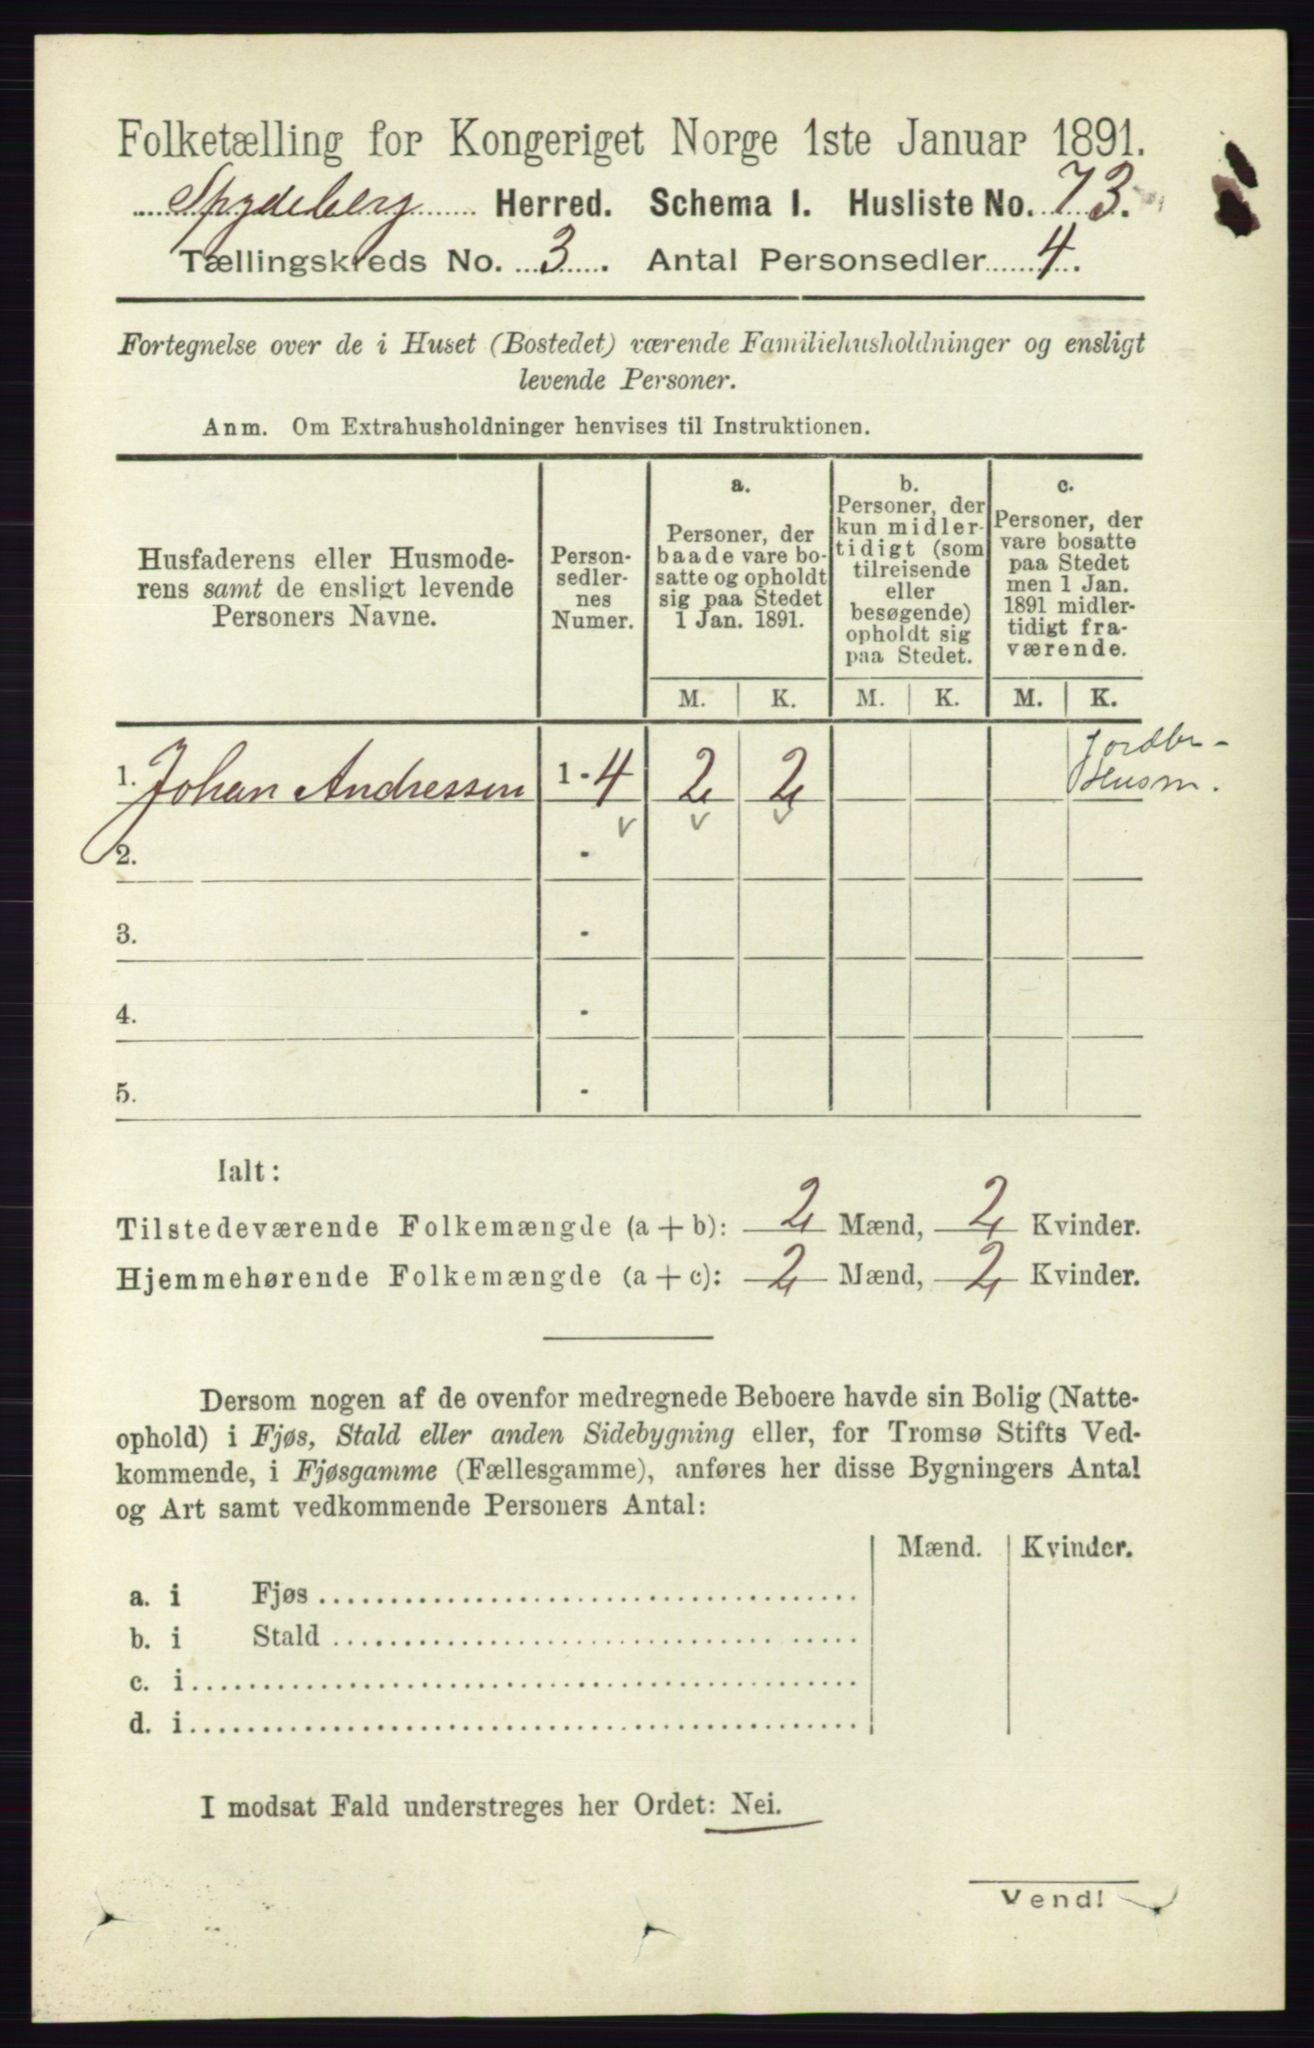 Folketælling for Kongeriget Norge 1ste Januar 1891.
Spydeberg Herred. Schema I. Husliste No. 73.
Tællingskreds No. 3. Antal Personsedler 4.
Fortegnelse over de i Huset (Bostedet) værende Familiehusholdninger og ensligt
levende Personer.
Anm. Om Extrahusholdninger henvises til Instruktionen.
Husfaderens eller Husmode-
rens samt de ensligt levende
Personers Navne.
Person-
sedler-
nes
Numer.
a.
Personer, der
baade vare bo-
satte og opholdt
sig paa Stedet
1 Jan. 1891.
b.
Personer, der
kun midler-
tidigt (som
tilreisende
eller
besøgende)
opholdt sig
paa Stedet.
c.
Personer, der
vare bosatte
paa Stedet
men 1 Jan.
1891 midler-
tidigt fra-
værende.
M. K. M. K. M. K.
1. Johan Andressen 1 - 4 2 2 Jordbr -
Husm.
2. -
3. -
4. -
5. -
Ialt:
Tilstedeværende Folkemængde (a + b): 2 Mænd, 2 Kvinder.
Hjemmehørende Folkemængde (a + c): 2 Mænd, 2 Kvinder.
Dersom nogen af de ovenfor medregnede Beboere havde sin Bolig (Natte-
ophold) i Fjøs, Stald eller anden Sidebygning eller, for Tromsø Stifts Ved-
kommende, i Fjøsgamme (Fællesgamme), anføres her disse Bygningers Antal
og Art samt vedkommende Personers Antal:
Mænd. Kvinder.
a. i Fjøs
b. i Stald
c. i
d. i
I modsat Fald understreges her Ordet: Nei.
Vend!